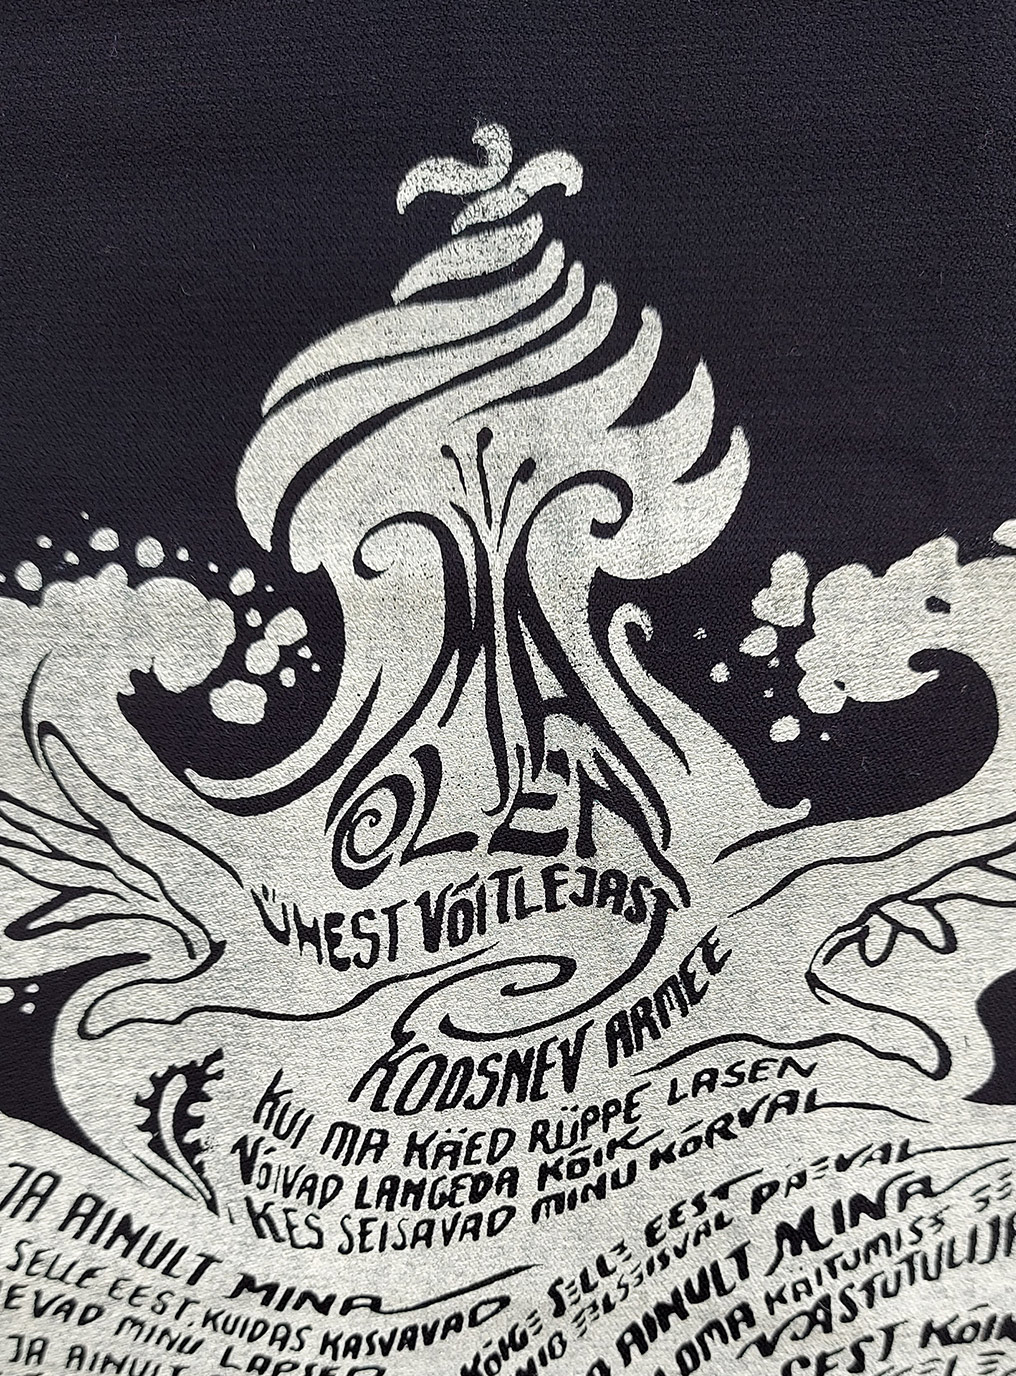 MA
OLEN
ÜHEST VÕITLEJAST
KOOSNEV ARMEE
KUI MA KÄED RÜPPE LASEN
VÕIVAD LANGEDA KÕIK
KES SEISAVAD MINU KÕRVAL
JA AINULT MINA
SELLE EEST, KUIDAS KASVAVAD
EVAD MINU LAPSED
JA AINULT
KÕIGE SELLE EEST
EELSEISVAL PÄEVAL
AINULT MINA
OMA KÄITUMISE
VASTUTULIJA
EEST KÕIK